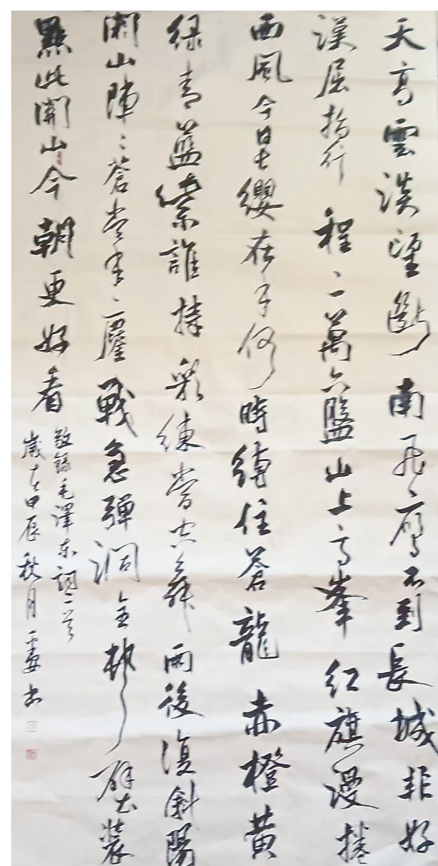 天高雲淡望斷南飛雁不到長城非好
漢屈指行程二萬六盤山上高峯紅旗漫捲
西風今日長纓在手何時縛住蒼龍赤橙黃
緑青藍紫誰持彩練當空舞雨後復斜陽
関山陣陣蒼當年鏖戰急彈洞前村壁裝
點此関山今朝更好看
敬錄毛澤東詞二首
歲在甲辰秋月書